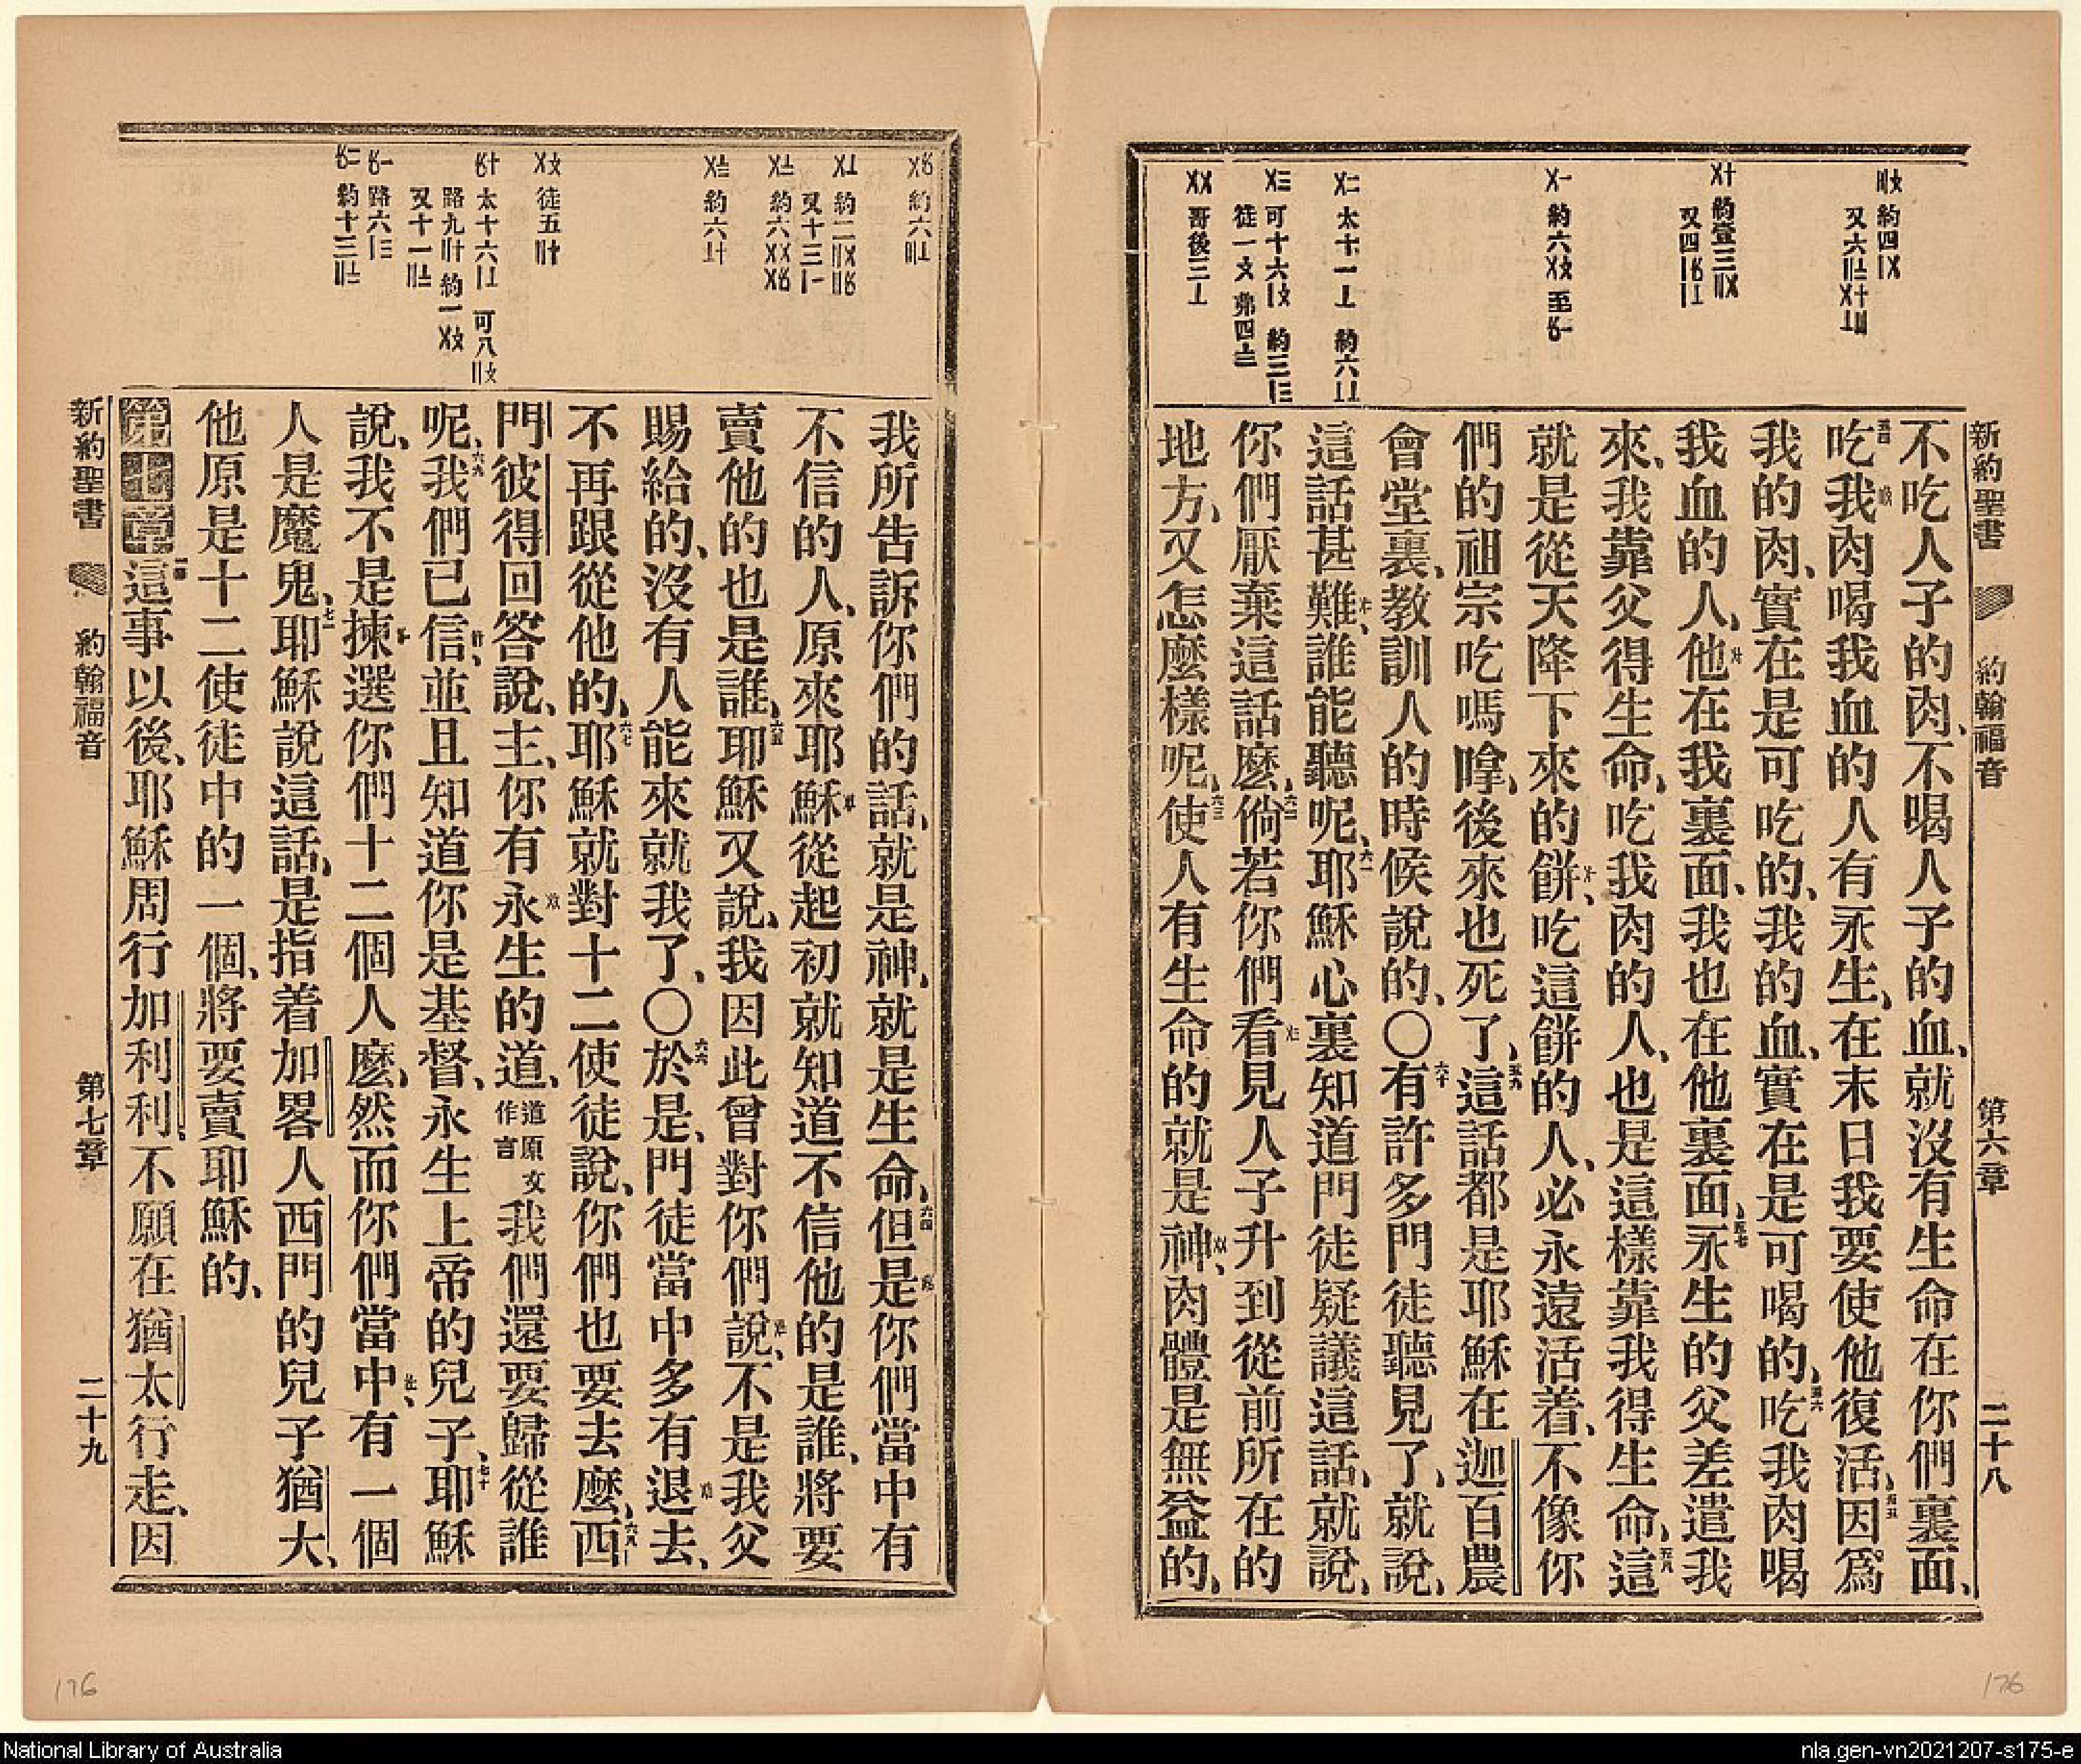 新約聖書 約翰福音 第六章 二十八
不吃人子的肉、不喝人子的血、就沒有生命在你們裏面、
吃我肉喝我血的人有永生、在末日我要使他復活、因爲
我的肉、實在是可吃的、我的血、實在是可喝的、吃我肉喝
我血的人、他在我裏面、我也在他裏面、永生的父差遣我
來、我靠父得生命、吃我肉的人、也是這樣靠我得生命、這
就是從天降下來的餅、吃這餅的人、必永遠活着、不像你
們的祖宗吃嗎嗱、後來也死了、這話都是耶穌在迦百農
會堂裏、教訓人的時候說的、〇有許多門徒聽見了、就說、
這話甚難、誰能聽呢、耶穌心裏知道門徒疑議這話、就說、
你們厭棄這話麽、倘若你們看見人子升到從前所在的
地方、又怎麽樣呢、使人有生命的就是神、肉體是無益的、
我所告訴你們的話、就是神、就是生命、但是你們當中有
不信的人、原來耶穌從起初就知道不信他的是誰、將要
賣他的也是誰、耶穌又說、我因此曾對你們說、不是我父
賜給的、沒有人能來就我了、〇於是、門徒當中多有退去、
不再跟從他的、耶穌就對十二使徒說、你們也要去麽、西
門彼得回答說、主、你有永生的道、道原文作言我們還要歸從誰
呢、我們已信、並且知道你是基督、永生上帝的兒子、耶穌
說、我不是揀選你們十二個人麽、然而你們當中、有一個
人是魔鬼、耶穌說這話、是指着加畧人西門的兒子猶大、
他原是十二使徒中的一個、將要賣耶穌的、
第七章這事以後、耶穌周行加利利、不願在猶太行走、因
新約聖書 約翰福音 第七章 二十九
176
176
National Library of Australia
nla.gen-vn2021207-s175-e